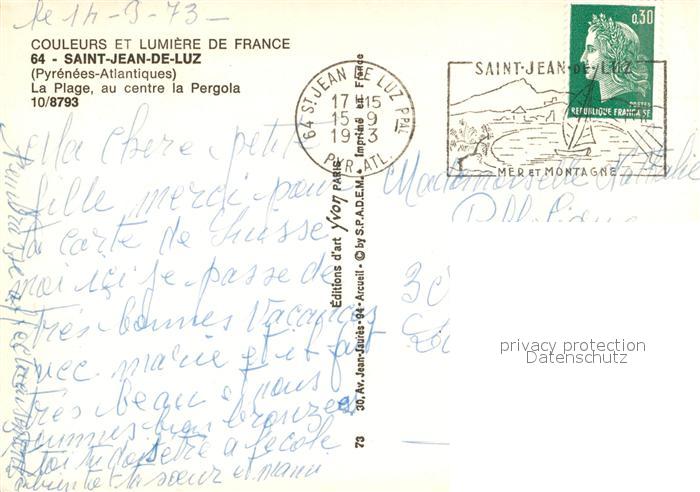 le 14-9-73-
COULEURS ET LUMIÈRE DE FRANCE
64 - SAINT-JEAN-DE-LUZ
(Pyrénées-Atlantiques)
La Plage, au centre la Pergola
10/8793
64 ST JEAN DE LUZ PPAL
17-15
15-9
1973
PYR. ATL.
SAINT-JEAN-DE-LUZ
MER ET MONTAGNE
0,30
POSTES
REPUBLIQUE FRANÇAISE
Ma chère petite
fille merci pour
ta carte de Suisse
moi ici je passe de
très bonnes vacances
avec mamie et il fait
très beau nous
sommes bien bronzées
toi tu dois être à l'école
ta soeur et
Mademoiselle Nathalie
30
Éditions d'art Yvon PARIS
30, Av. Jean-Jaurès - 94 - Arcueil - © by S.P.A.D.E.M. - Imprimé en France
73
privacy protection
Datenschutz